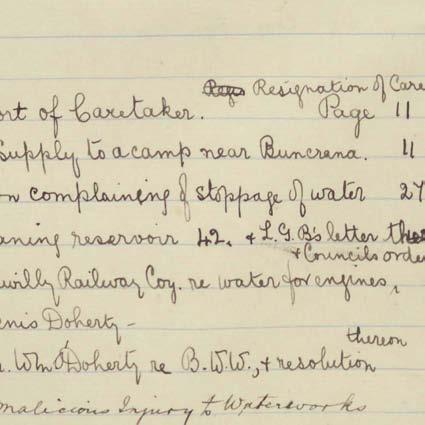 Resignation of Care
ort of Caretaker. Page 11
Supply to a camp near Buncrana. 11
on complaining of stoppage of water 27
aning reservoir 42. & L.G.B's letter ther
& Councils order
willy Railway Coy. re water for engines,
enis Doherty -
thereon
r. Wm O'Doherty re B.W.W., & resolution
Malicious Injury to Waterworks